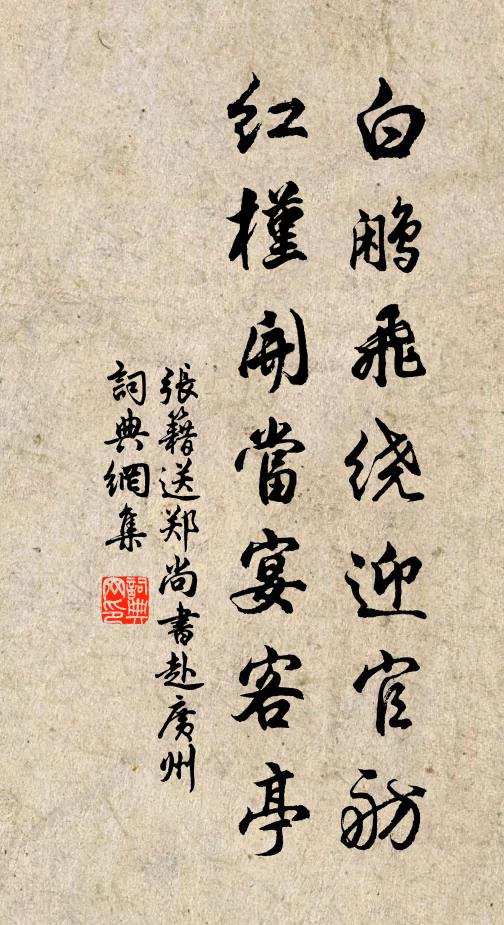 白鹇飛绕迎官舫
紅槿開當宴客亭
張籍送郑尚書赴廣州
詞典網集
詞典网印